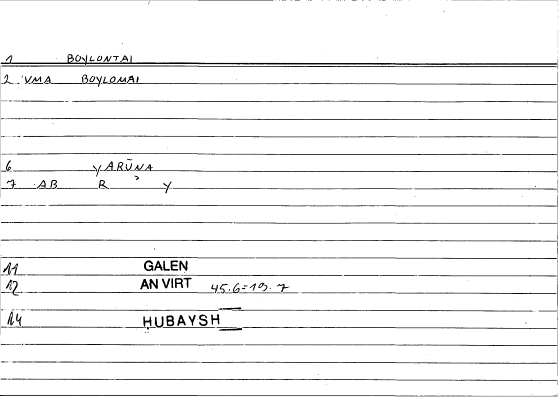 1 BOYLONTAI
2 VMA BOYLOMAI
6 YARŪNA
7 AB R Y
11 GALEN
12 AN VIRT 45.6=19.7
14 ḤUBAYSH